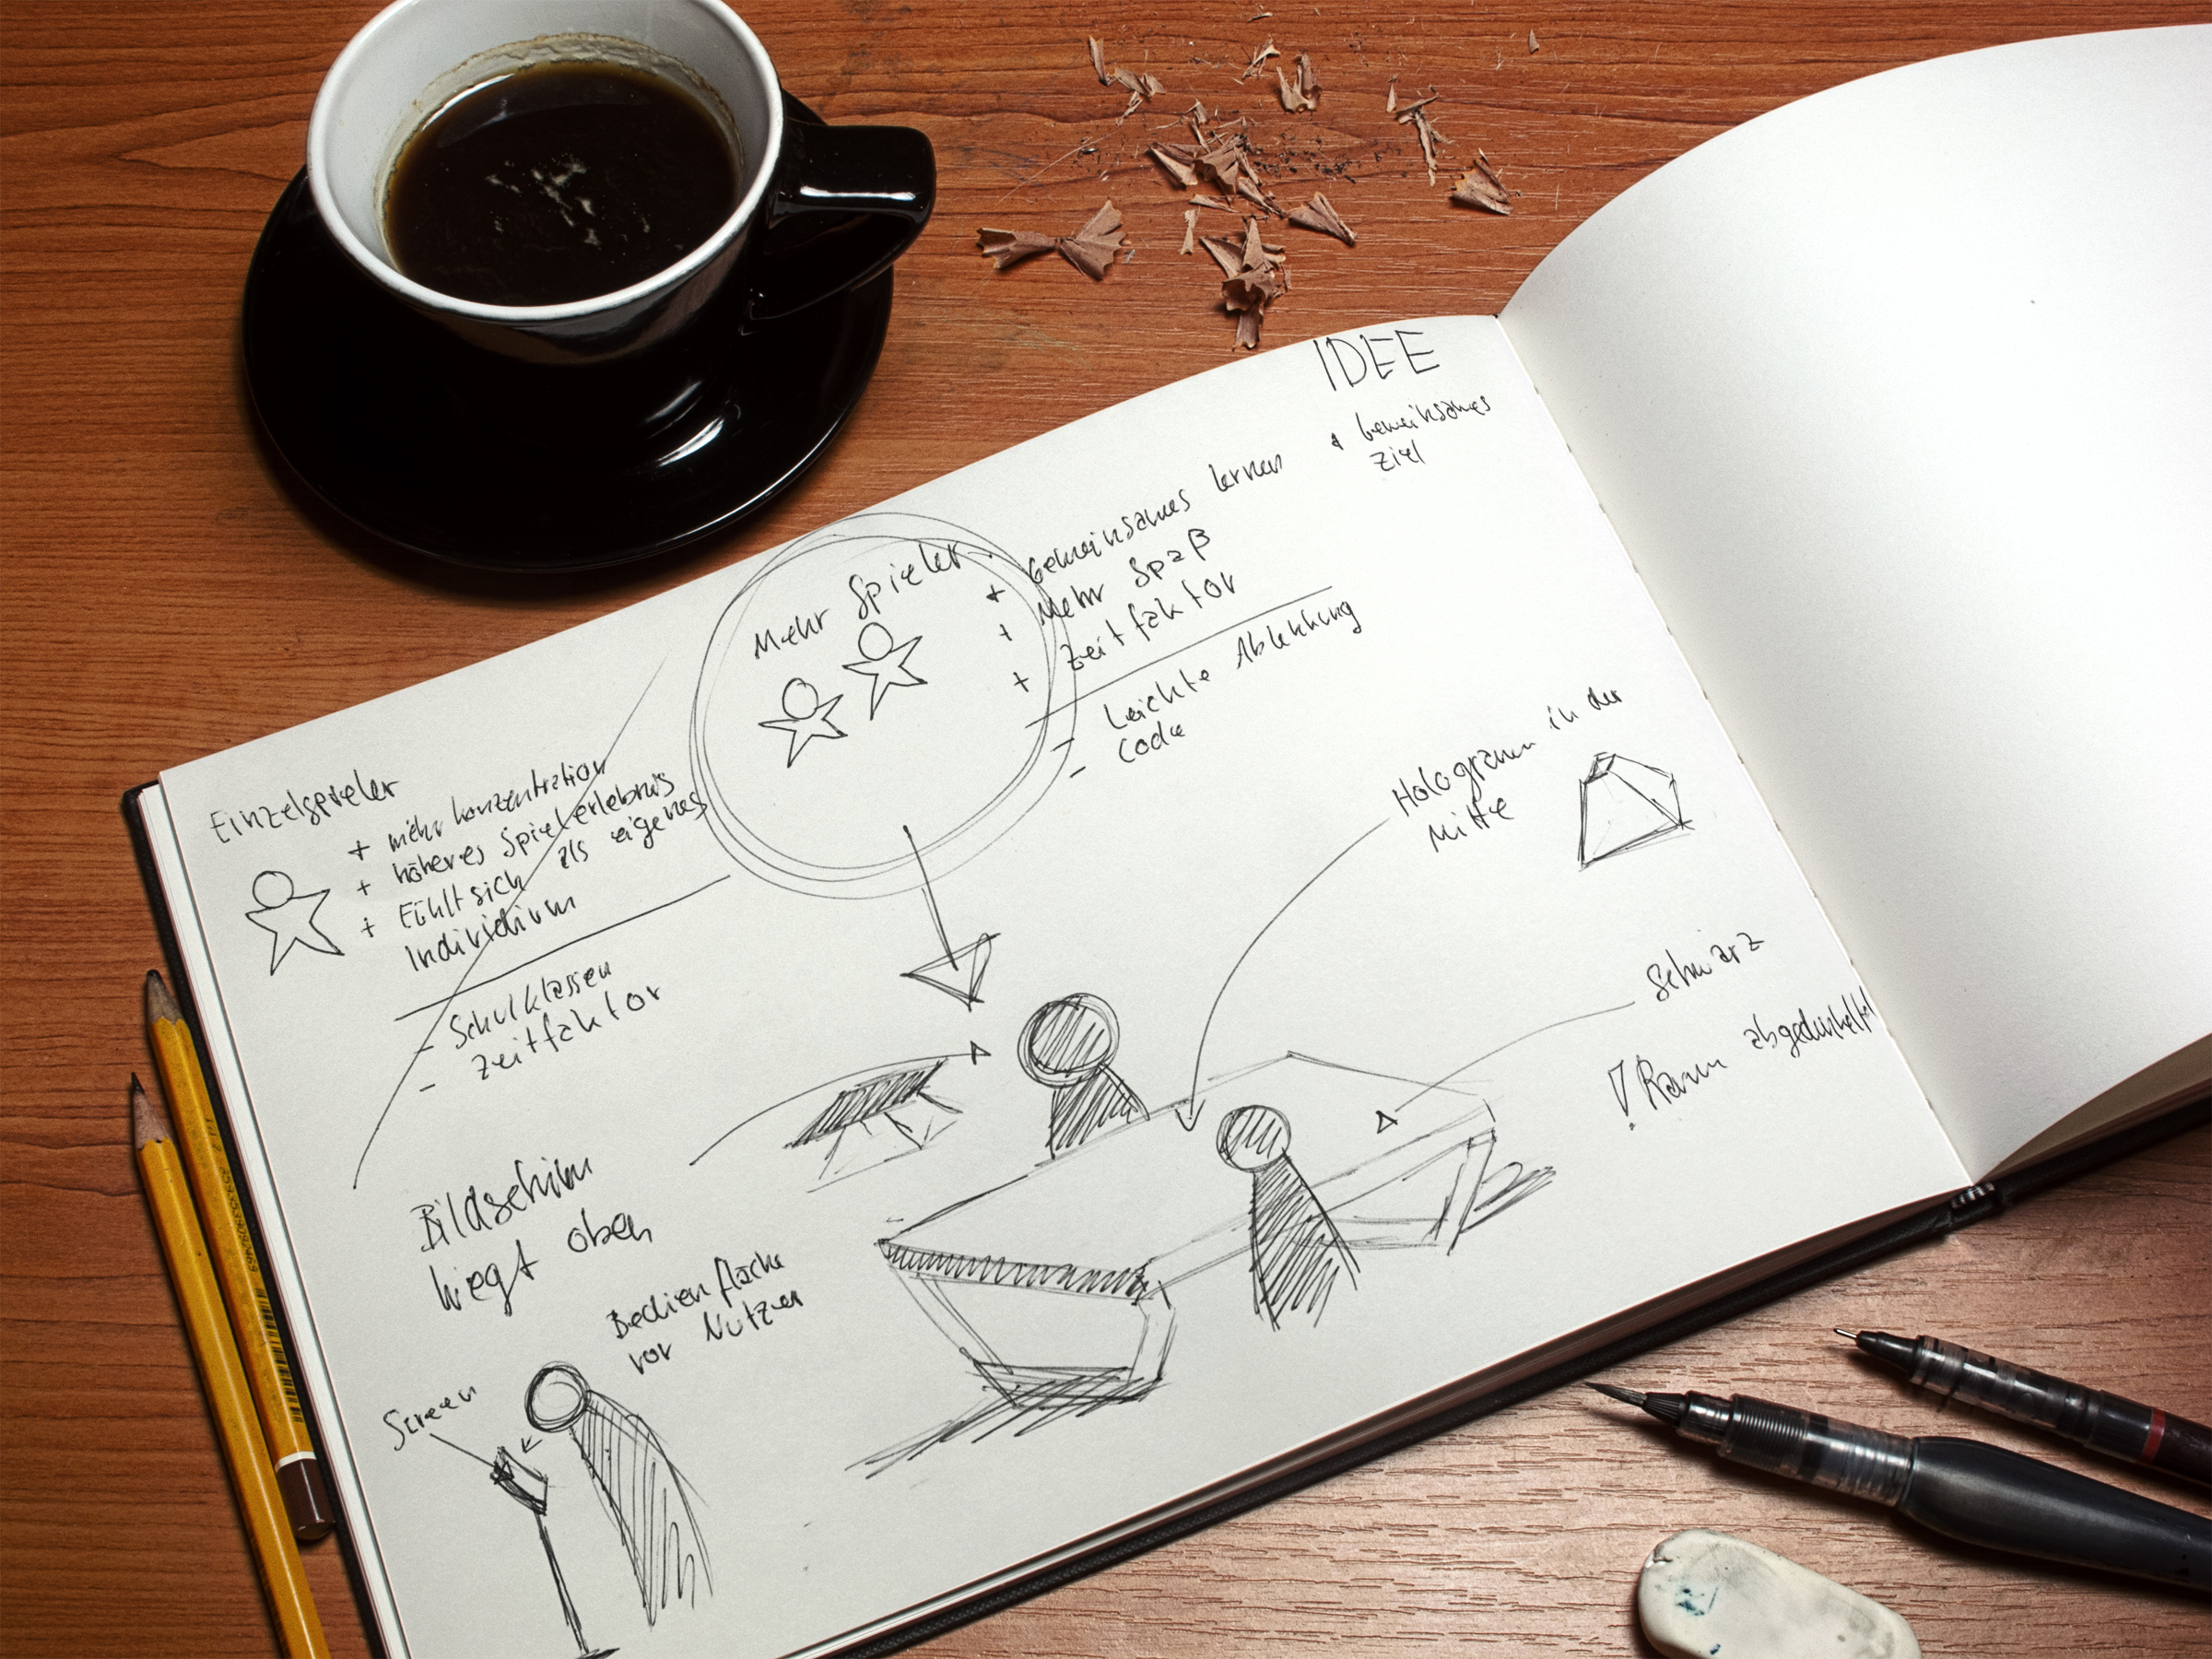 IDEE
+ Gemeinsames
Ziel
Mehr Spieler
+ Gemeinsames lernen
+ Mehr Spaß
+ Zeitfaktor
- Leichte Ablenkung
- Code
Einzelspieler
+ mehr konzentration
+ höheres Spielerlebnis
+ Fühlt sich als eigenes
Individium
- Schulklassen
- Zeitfaktor
Hologramm in der
Mitte
Schwarz
! Raum abgedunkelt
Bildschirm
liegt oben
Bedienfläche
vor Nutzer
Screen